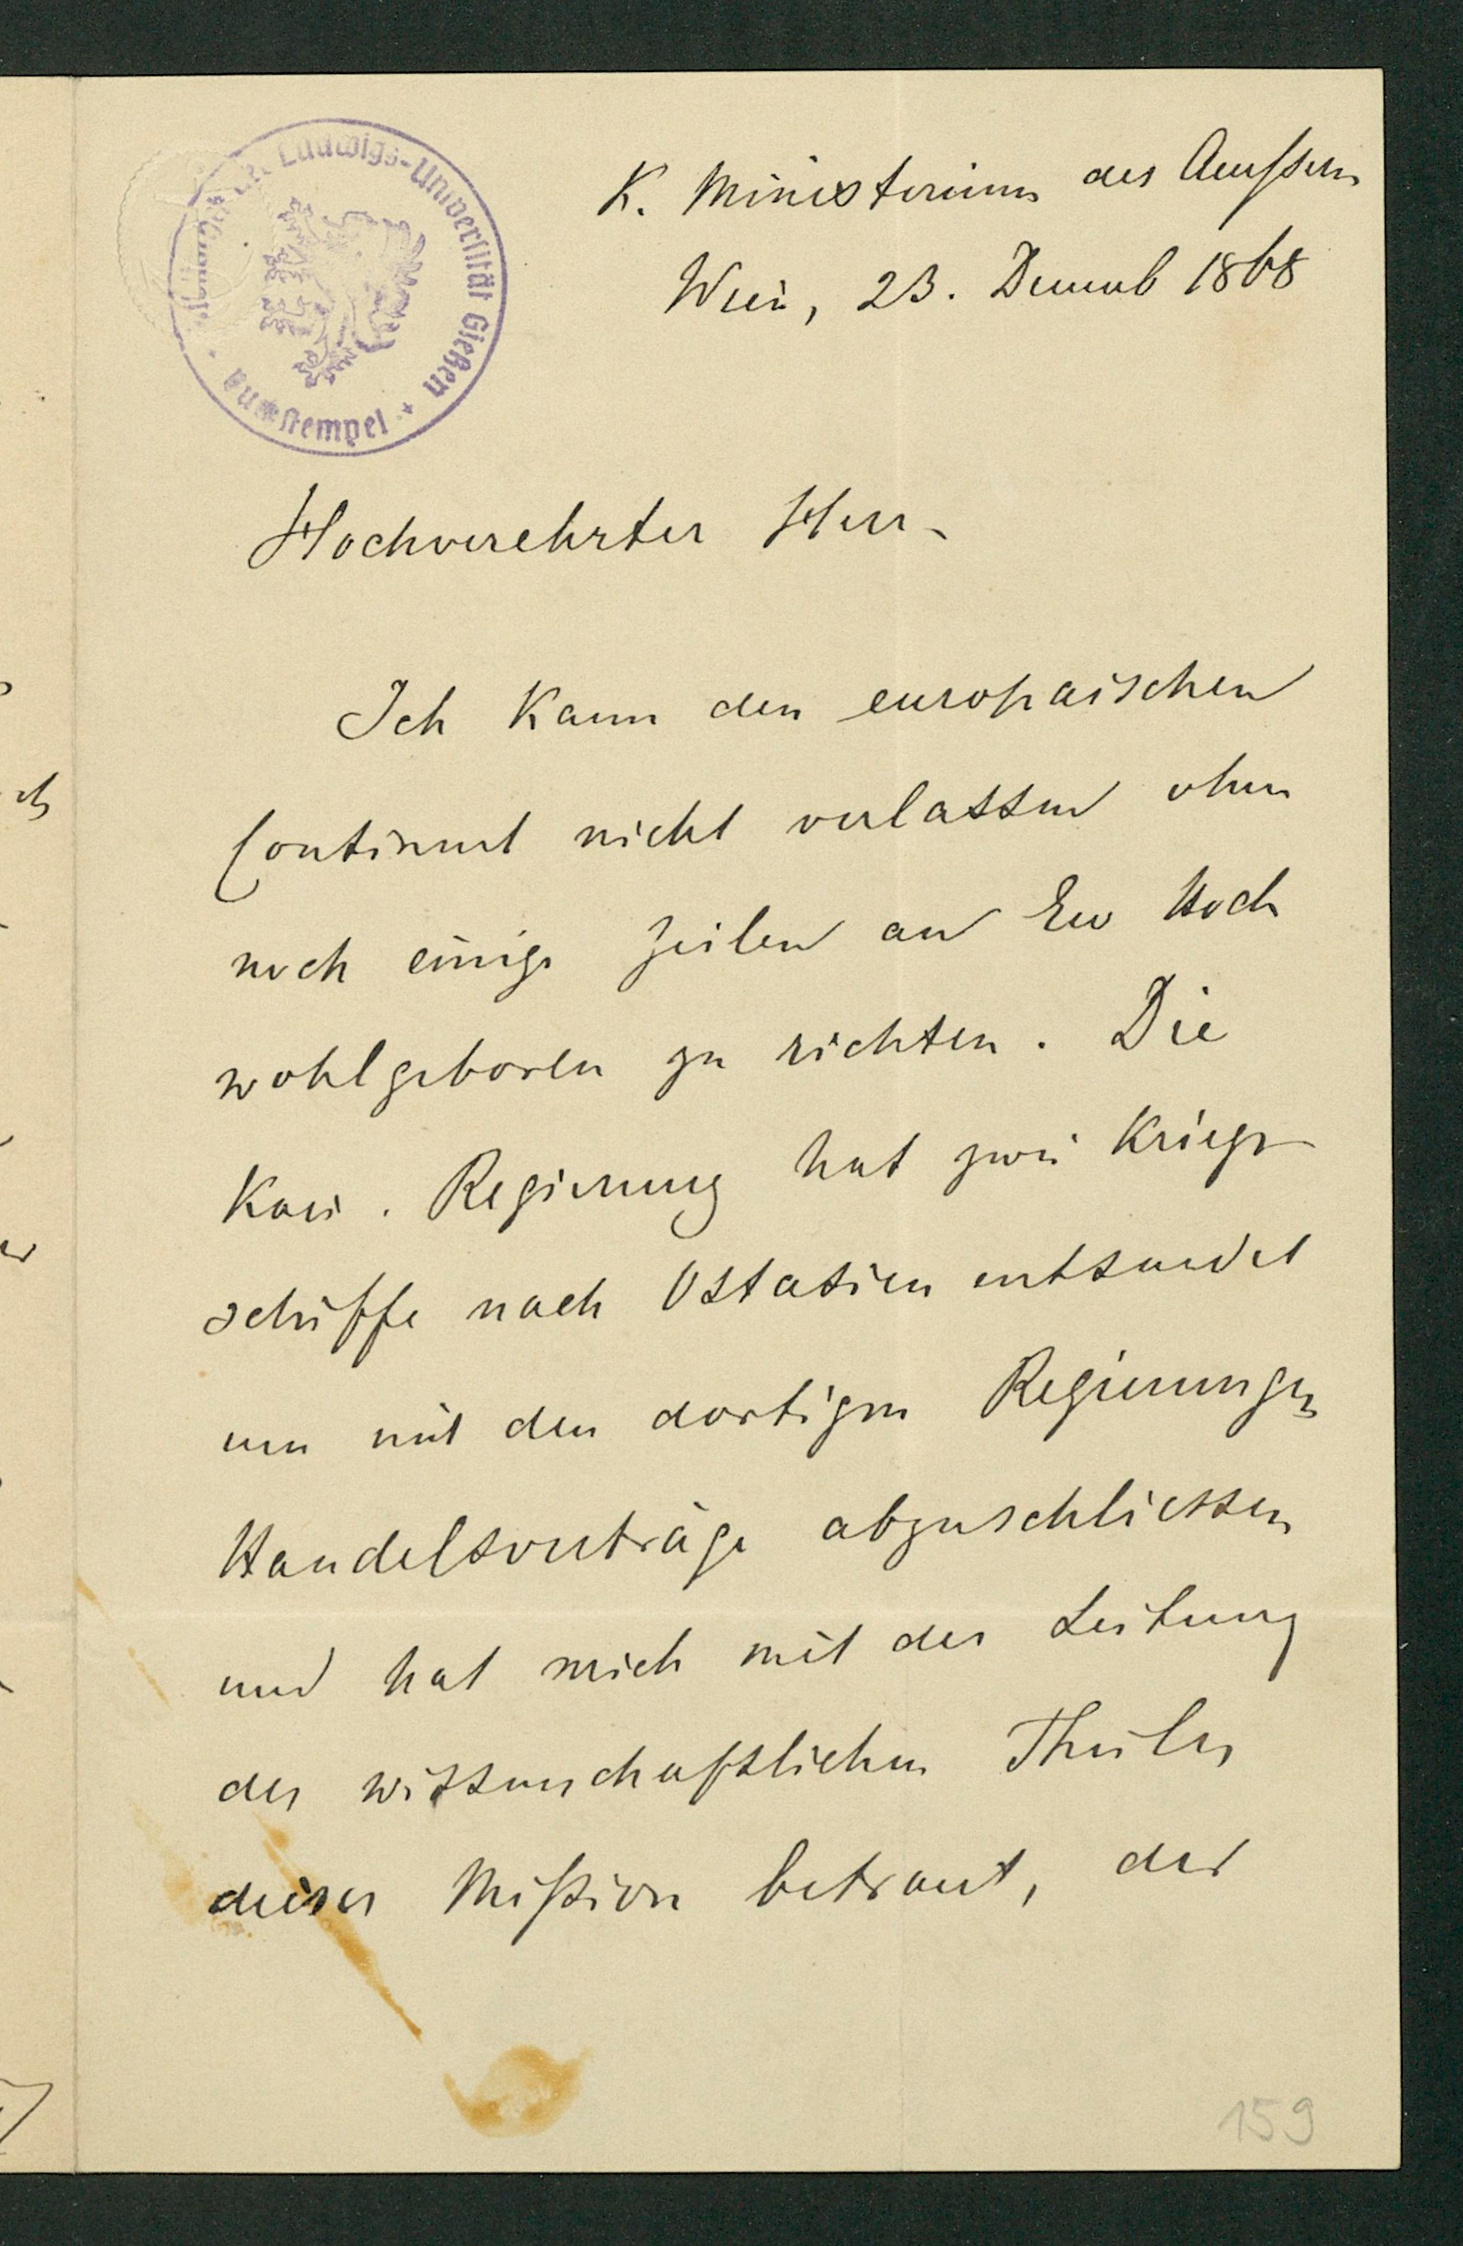 K. Ministerium des Aeussern
Wien, 23. Dezemb 1868
Ludwigs-Universität Gießen
Hochverehrter Herr
Ich Kann den europaischen
Continent nicht verlassen ohne
noch einige Zeilen an Ew Hoch
wohlgeboren zu richten. Die
Kais. Regierung hat zwei Kriegs
schiffe nach Ostasien entsendet
um mit den dortigen Regierungen
Handelsverträge abzuschliessen
und hat mich mit der Leitung
des wissenschaftlichen Theiles
dieser Mission betraut, der
159